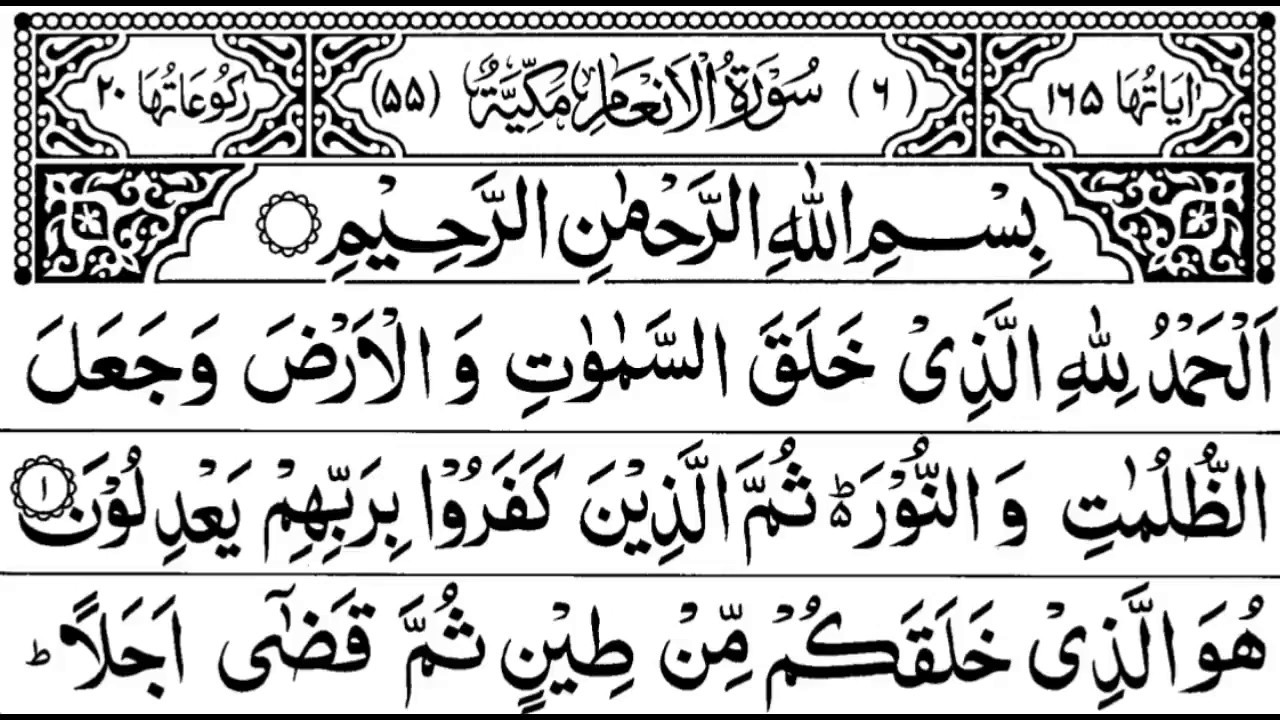 اٰيَاتُهَا ١٦٥ (٦) سُوۡرَةُ الۡاَنۡعَامِ مَكِّيَّةٌ (٥٥) رُكُوۡعَاتُهَا ٢٠
بِسۡمِ اللّٰهِ الرَّحۡمٰنِ الرَّحِيۡمِ
اَلۡحَمۡدُ لِلّٰهِ الَّذِىۡ خَلَقَ السَّمٰوٰتِ وَ الۡاَرۡضَ وَ جَعَلَ
الظُّلُمٰتِ وَ النُّوۡرَ ؕ۬ ثُمَّ الَّذِيۡنَ كَفَرُوۡا بِرَبِّهِمۡ يَعۡدِلُوۡنَ ١
هُوَ الَّذِىۡ خَلَقَكُمۡ مِّنۡ طِيۡنٍ ثُمَّ قَضٰٓى اَجَلًا ؕ